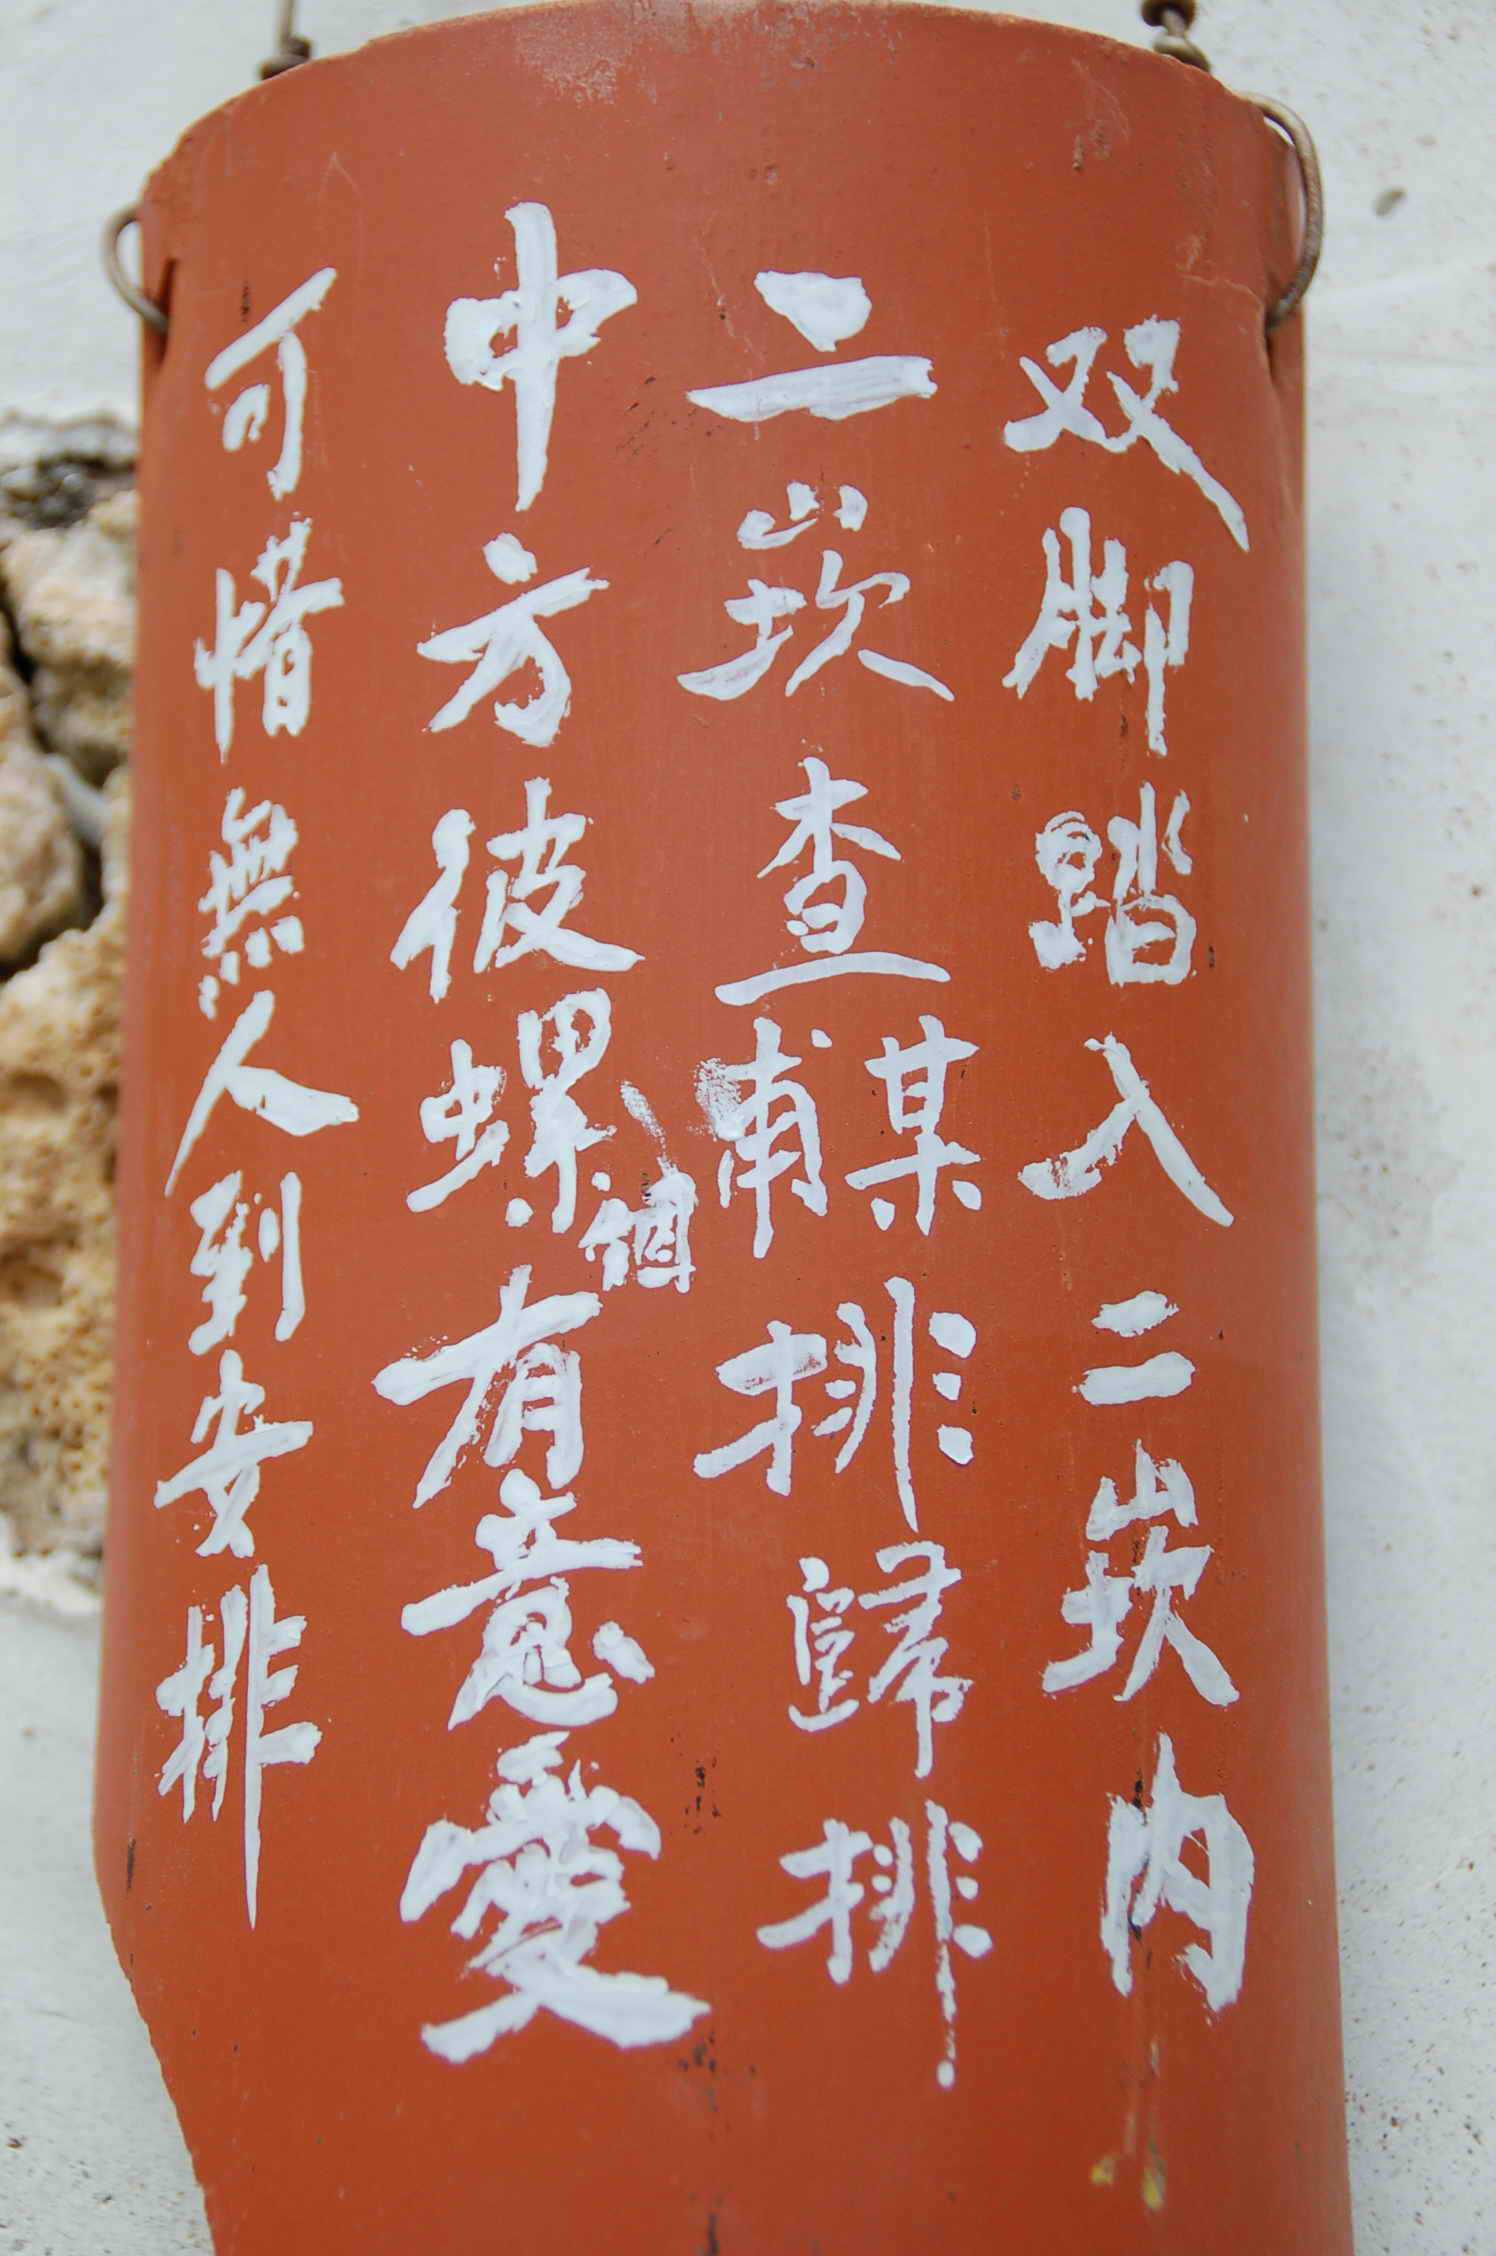 双脚踏入二崁内
二崁查某甫排歸排
中方彼螺個有意愛
可惜無人到安排